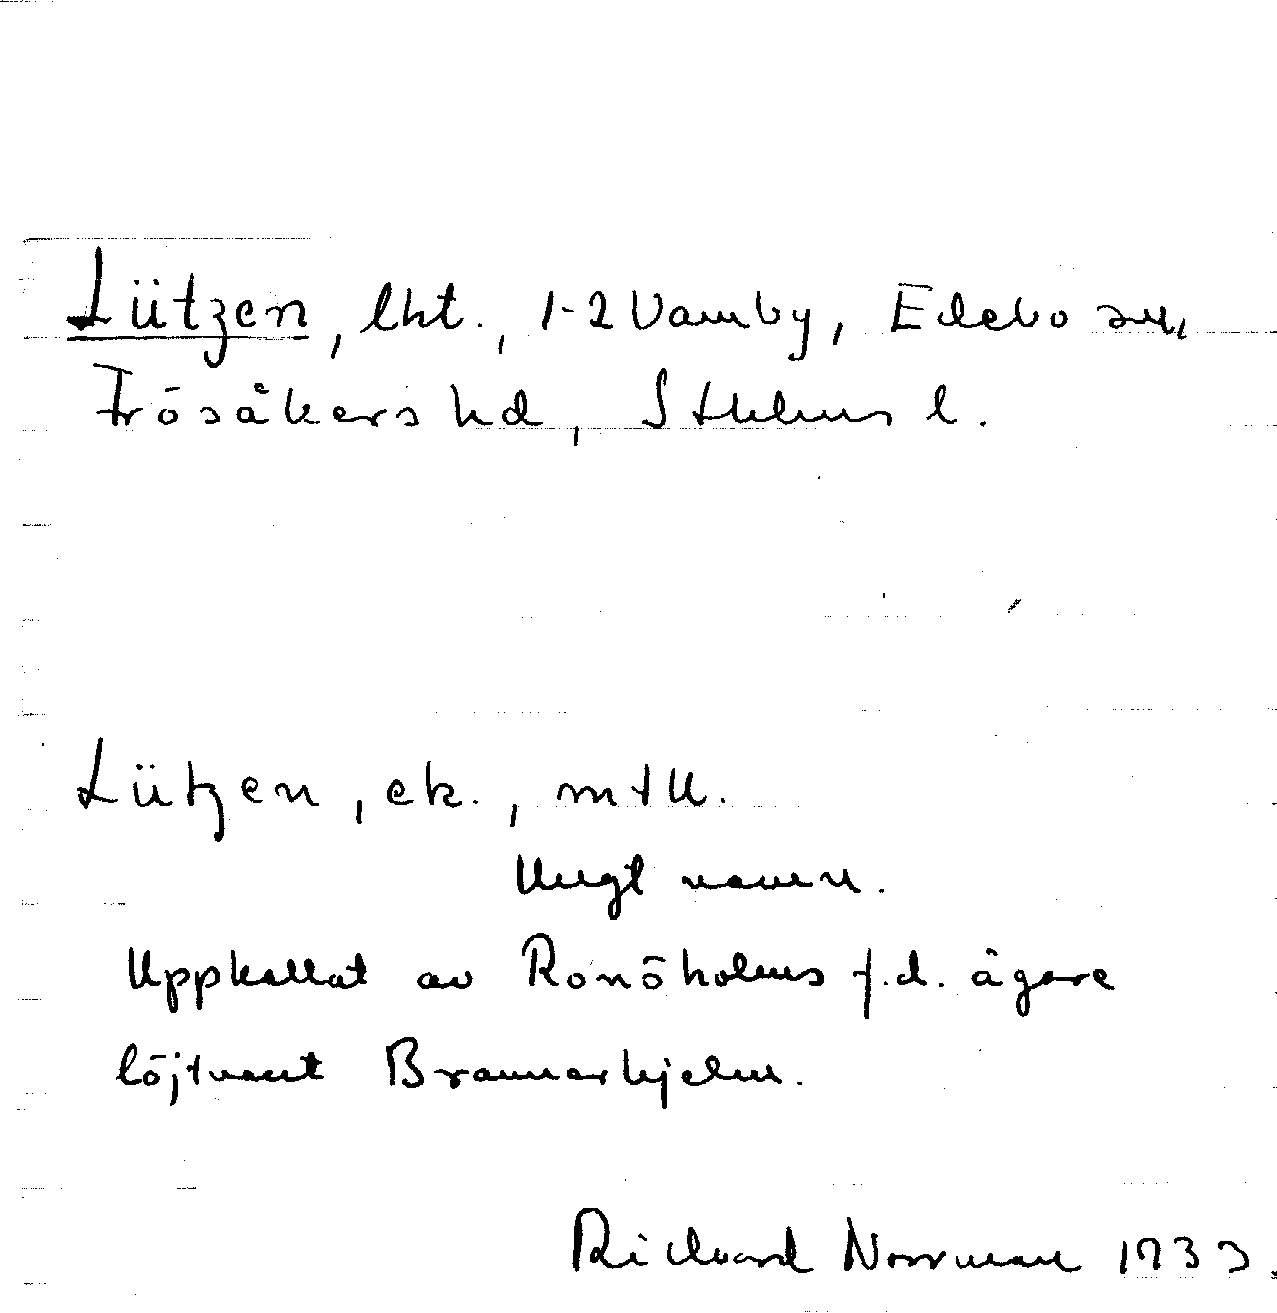 Lützen, lht., 1-2 Vamby, Edebo sn,
Frösåkers hd, Sthlms l.
Lützen, ek., mtU.
Ungt namn.
Uppkallat av Ronöholms f.d. ägare
löjtnant Brannerhjelm.
Richard Norrman 1933.